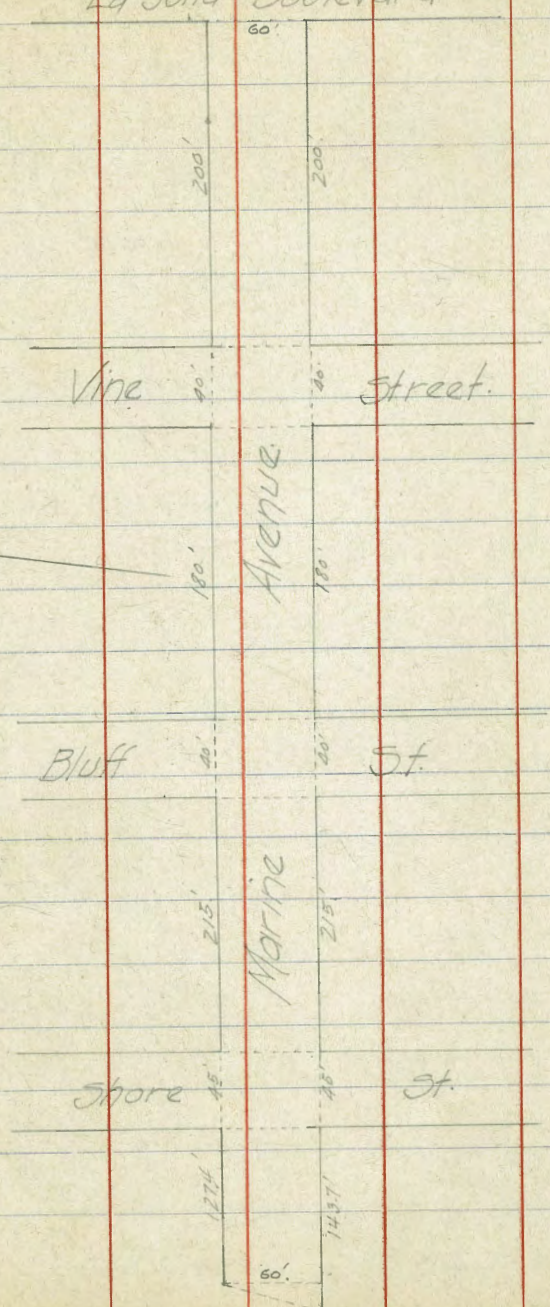 La Jolla Boulevard
60'.
200' 200'
Vine 40' 40' Street.
Avenue.
180' 180'
Bluff 40' 40' St.
Marine
215' 215'
Shore 45' 45' St.
127.4' 143.7'
60'.